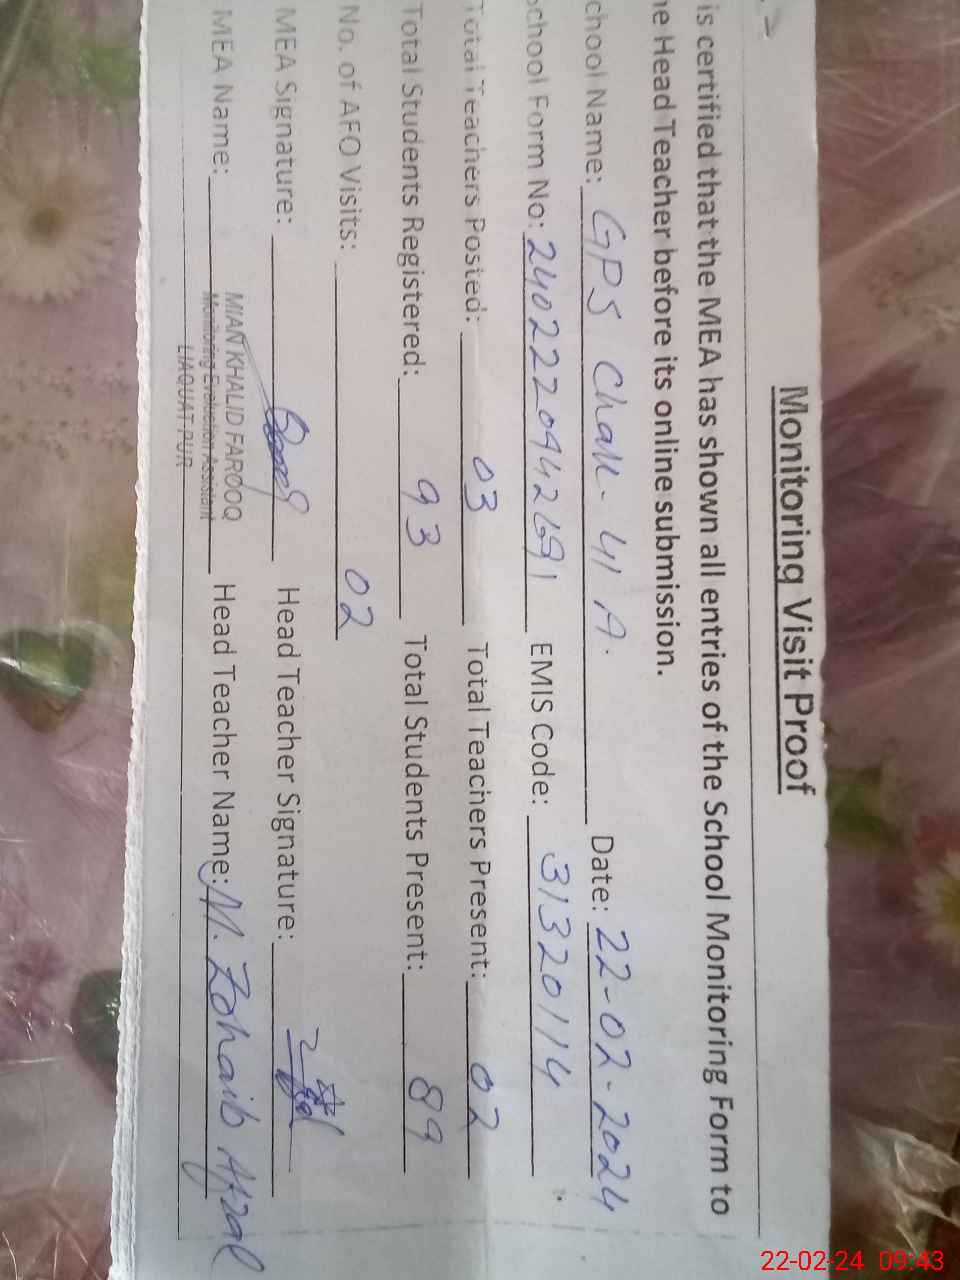 Monitoring Visit Proof
is certified that the MEA has shown all entries of the School Monitoring Form to
he Head Teacher before its online submission.
chool Name: GPS Chak-41 A. Date: 22-02-2024
School Form No: 240222094269 1 EMIS Code: 31320114
Total Teachers Posted: 03 Total Teachers Present: 02
Total Students Registered: 93 Total Students Present: 89
No. of AFO Visits: 02
MEA Signature: Head Teacher Signature:
MEA Name: MIAN KHALID FAROOQ Head Teacher Name: M. Zohaib Afzal
Monitoring Evaluation Assistant
LIAQUAT PUR
22-02-24 09:43